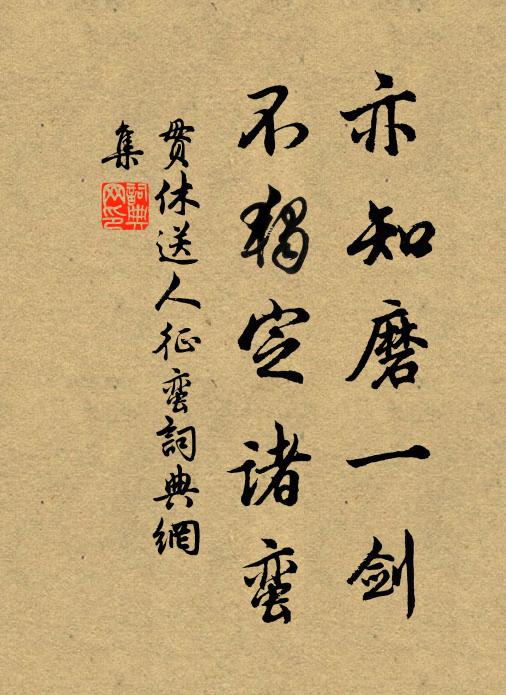 亦知磨一剑
不独定诸蛮
贯休送人征蛮詞典網
集
詞典
网印